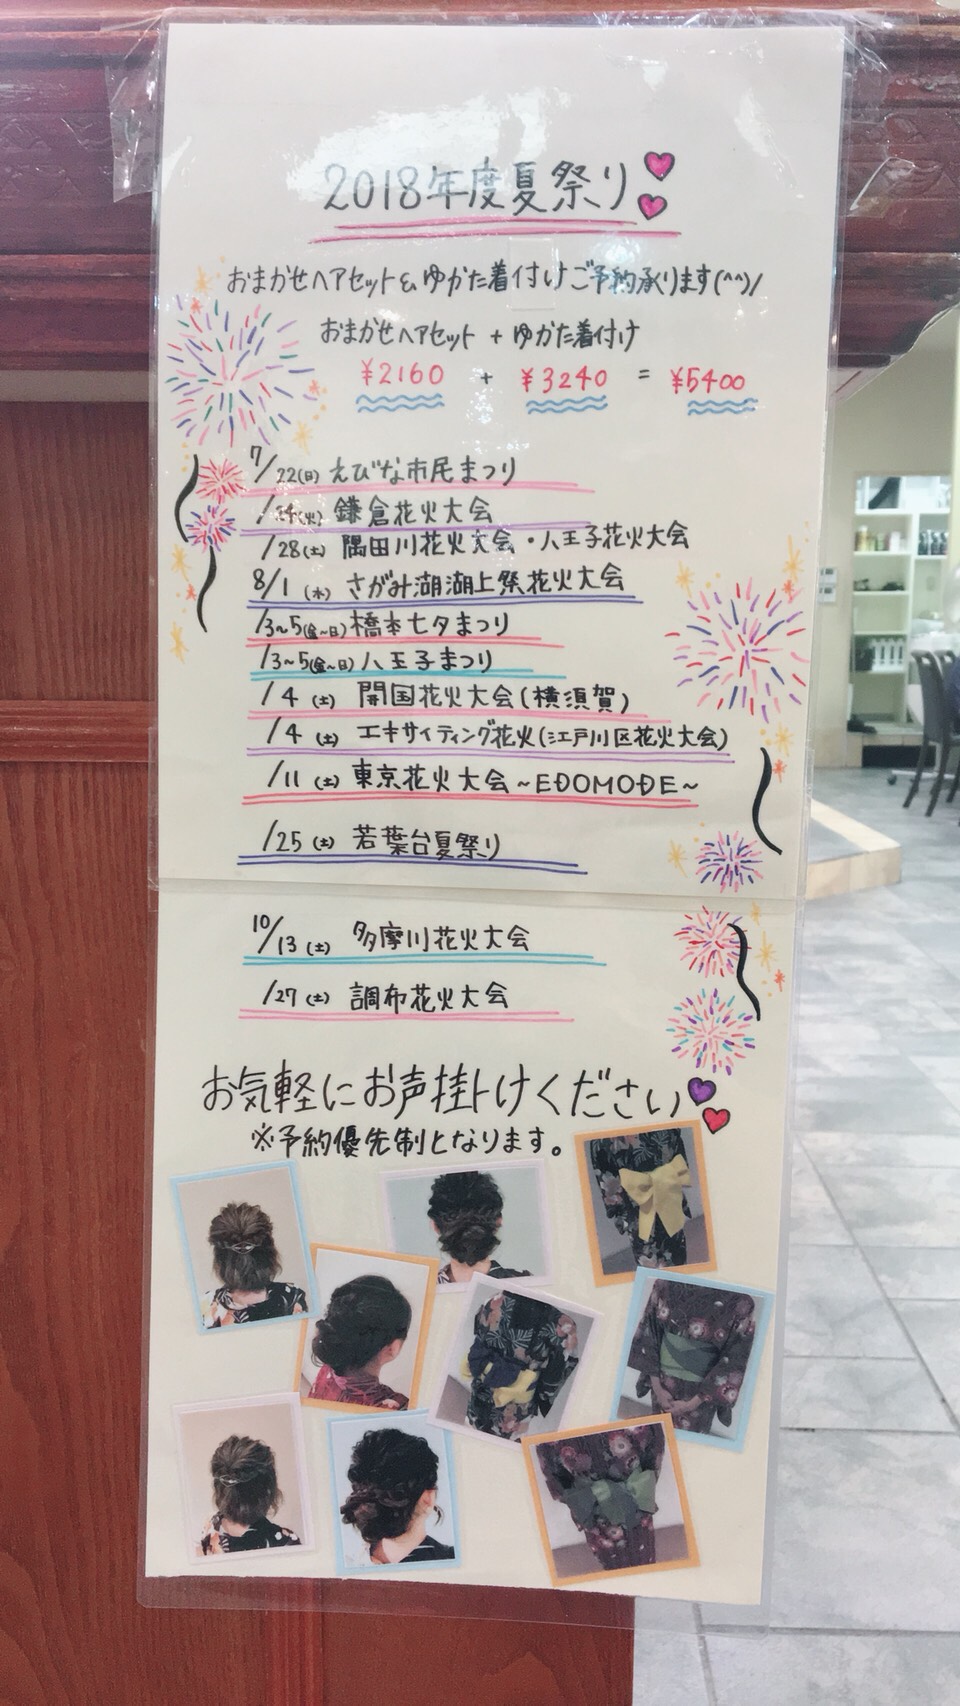 2018年度夏祭り
おまかせヘアセット&ゆかた着付けご予約承ります(^^)/
おまかせヘアセット + ゆかた着付け
¥2160 + ¥3240 = ¥5400
7/22(日) えびな市民まつり
/24(火) 鎌倉花火大会
/28(土) 隅田川花火大会・八王子花火大会
8/1 (水) さがみ湖湖上祭花火大会
/3~5(金~日) 橋本七夕まつり
/3~5(金~日) 八王子まつり
/4 (土) 開国花火大会(横須賀)
/4 (土) エキサイティング花火(江戸川区花火大会)
/11 (土) 東京花火大会~EDOMODE~
/25 (土) 若葉台夏祭り
10/13 (土) 多摩川花火大会
/27 (土) 調布花火大会
お気軽にお声掛けください
※予約優先制となります。